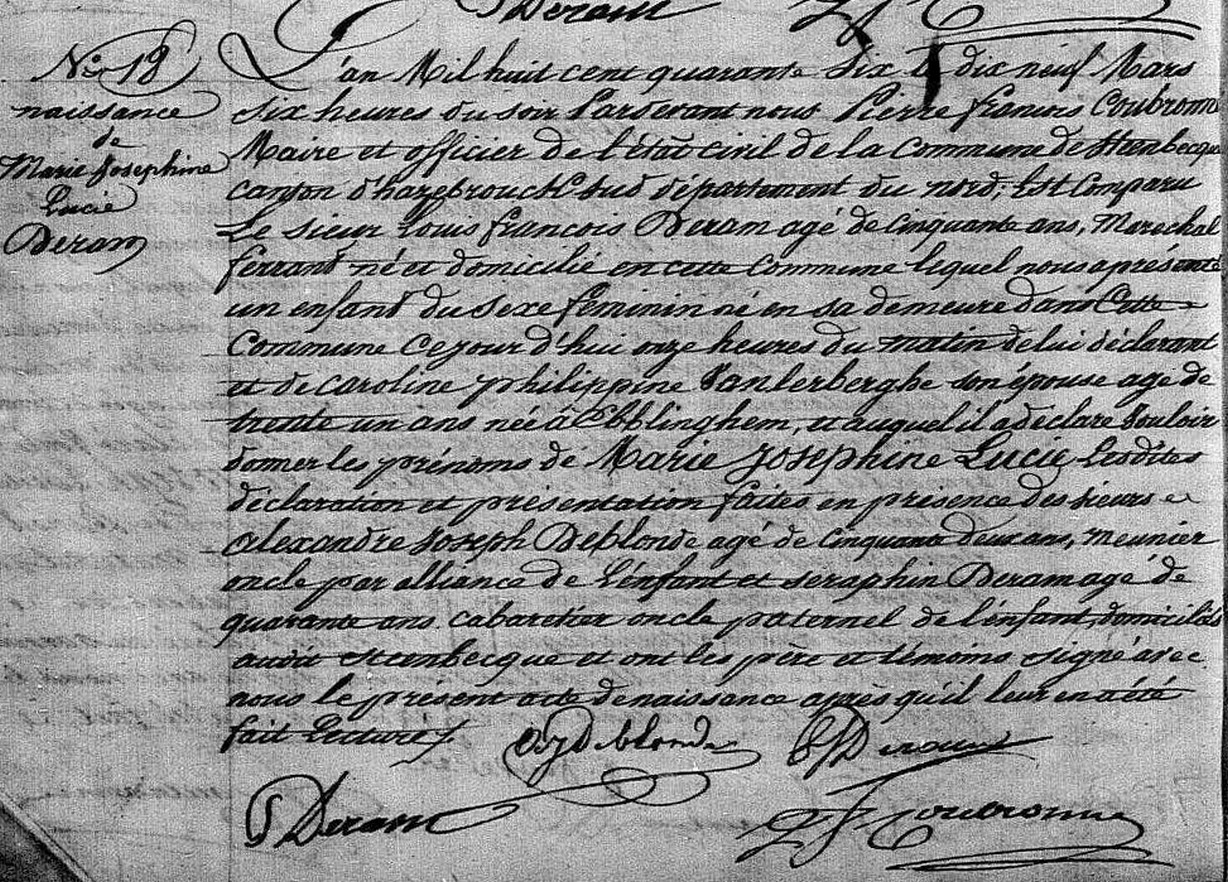 Deram
N° 18
naissance
de
Marie Josephine
Lucie
Deram
L'an Mil huit cent quarante Six le dix neuf Mars
six heures du soir Pardevant nous Pierre francois Coubronne
Maire et officier de l'état civil de la Commune de Steenbecque
canton d'hazebrouck sud département du nord, Est Comparu
Le sieur Louis francois Deram agé de cinquante ans, Marechal
ferrant né et domicilié en cette Commune lequel nous a présenté
un enfant du sexe feminin né en sa demeure dans Cette
Commune ce jour d'hui onze heures du matin de lui déclarant
et de Caroline philippine Vanlerberghe son épouse agé de
trente un ans née à Ebblinghem, et auquel il a déclaré Vouloir
donner les prénoms de Marie Josephine Lucie Lesdites
déclaration et présentation faites en présence des sieurs
alexandre Joseph Deblonde agé de cinquante deux ans, meunier
oncle par alliance de L'enfant et seraphin Deram agé de
quarante ans cabaretier oncle paternel de l'enfant, domiciliés
audit Steenbecque et ont les père et témoins signé avec
nous le présent acte de naissance après qu'il leur en a été
fait Lecture
Deblonde
Deram
Deram
Coubronne